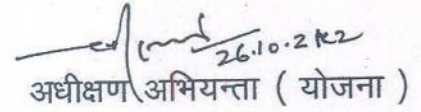 26.10.2022
अधीक्षण अभियन्ता ( योजना )